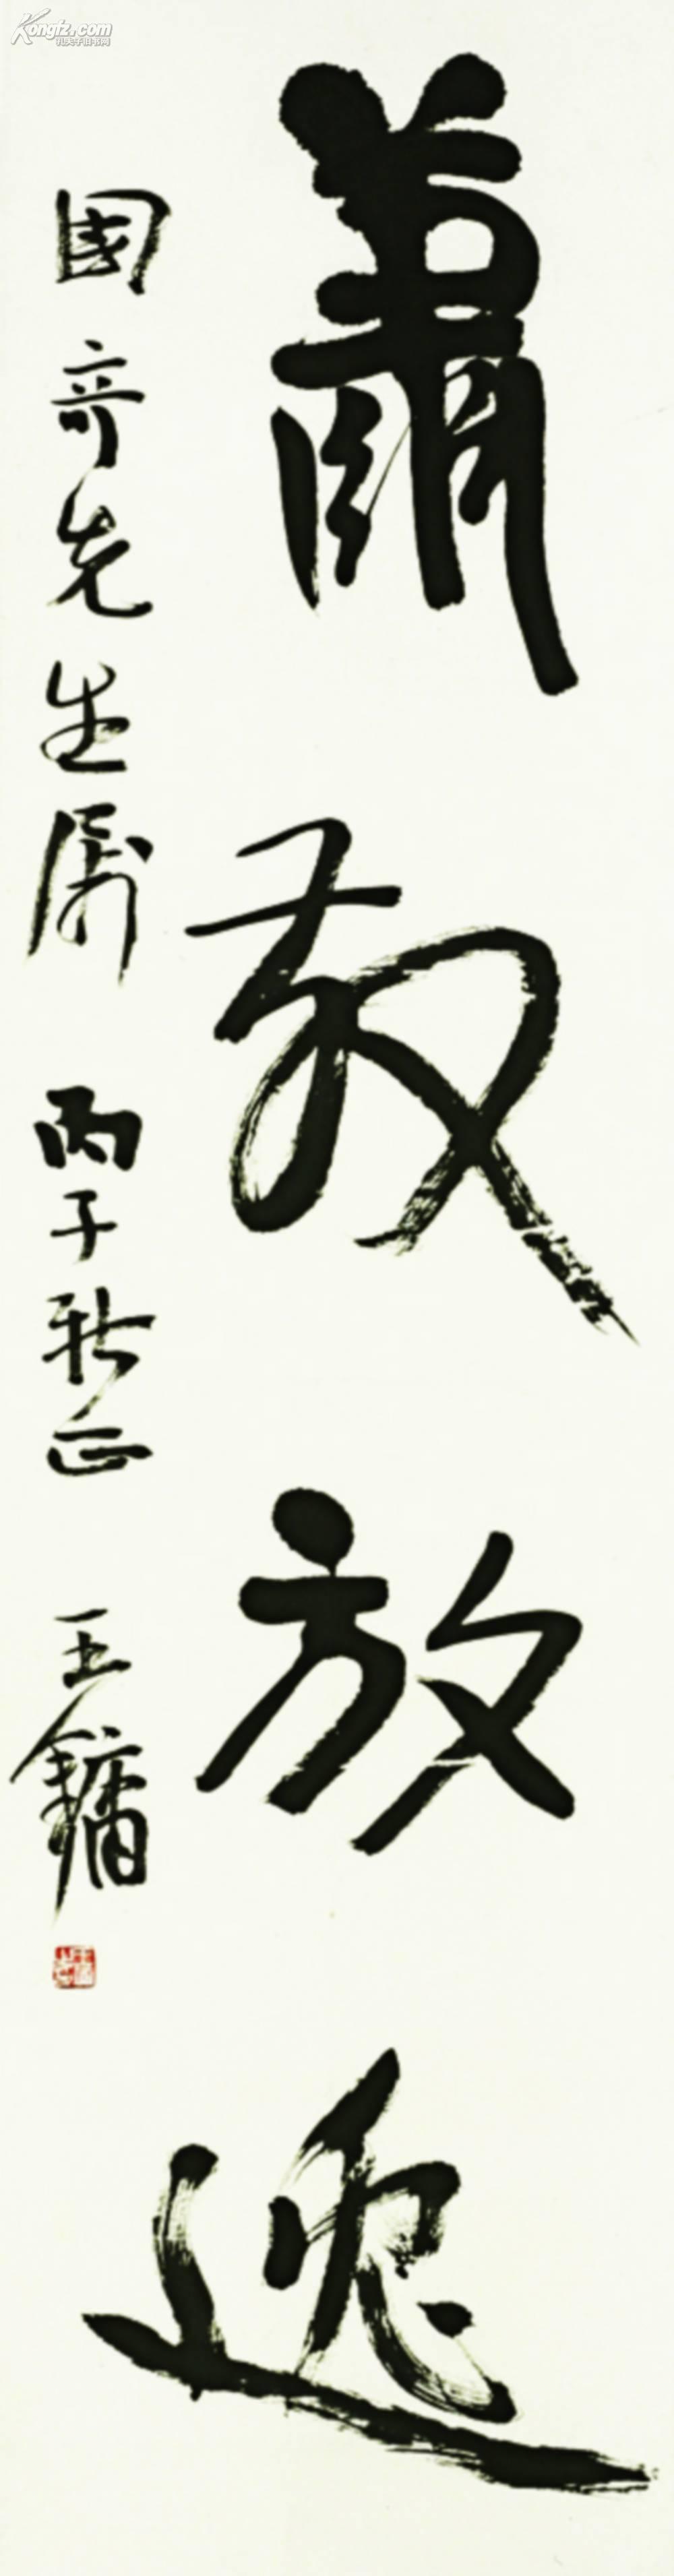 蕭散放逸
國奇先生屬 丙子新正 王鏞
Kongfz.com
孔夫子旧书网